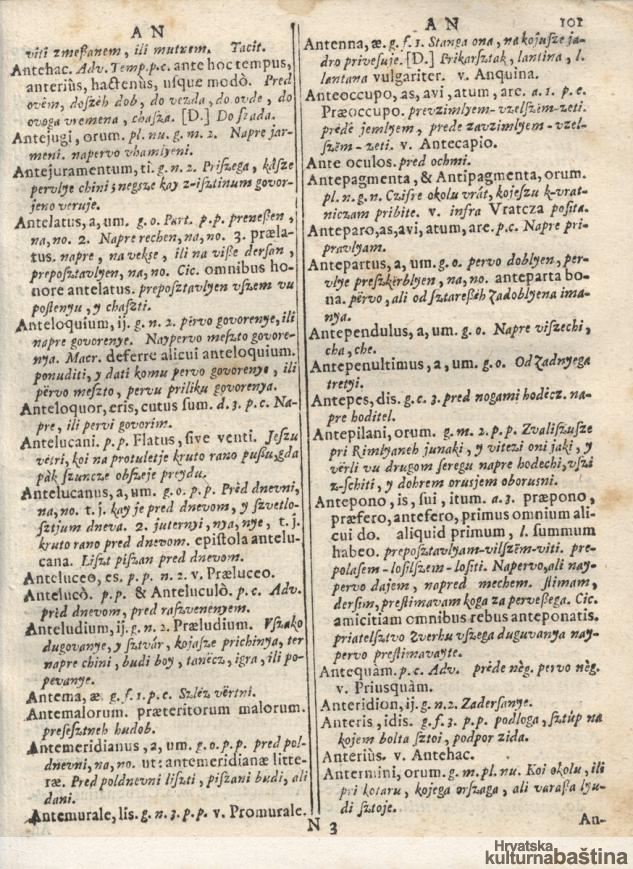 A N
viti zmeßanem, ili mutrem. Tacit.
Antehac. Adv. Temp. p.c. ante hoc tempus,
anteriùs, hactenùs, usque modò. Pred
ovèm, doszèh dob, do vezda, do ovde, do
ovoga vremena, chasza. [D.] Do siada.
Antejugi, orum. pl. nu. g. m. 2. Napre jar-
meni. napervo vhamlyeni.
Antejuramentum, ti. g. n. 2. Priszega, kàsze
pervlye chini; negsze kay z-isztinum govor-
jeno veruje.
Antelatus, a, um. g. o. Part. p. p. preneßen,
na, no. 2. Napre rechen, na, no. 3. præla-
tus. napre, na vekse, ili na viße dersan,
preposztavlyen, na, no. Cic. omnibus ho-
nore antelatus. preposztavlyen vszem vu
postenyu, y chaszti.
Anteloquium, ij. g. n. 2. pèrvo govorenye, ili
napre govorenye. Naypervo meszto govore-
nya. Macr. deferre alicui anteloquium.
ponuditi, y dati komu pervo govorenye, ili
pèrvo meszto, pervu priliku govorenya.
Anteloquor, eris, cutus sum. d. 3. p. c. Na-
pre, ili pervi govorim.
Antelucani. p. p. Flatus, sive venti. Jeszu
vètri, koi na protuletje kruto rano pußu, gda
pàk szuncze obszeje preydu.
Antelucanus, a, um. g. o. p. p. Prèd dnevni,
na, no. t. j. kay je pred dnevom, y szvetlo-
sztjum dneva. 2. juternyi, nya, nye, t. j.
kruto rano pred dnevom. epistola antelu-
cana. Liszt piszan pred dnevom.
Anteluceo, es. p. p. n. 2. v. Præluceo.
Antelucò. p. p. & Anteluculò. p. c. Adv.
prèd dnevom, pred raszvenenyem.
Anteludium, ij. g. n. 2. Præludium. Vszako
dugovanye, y sztvár, kojasze prichinya, ter
napre chini, budi boy, tanècz, igra, ili po-
pevanye.
Antema, æ. g. f. 1. p. c. Szlèz vèrtni.
Antemalorum. præteritorum malorum.
presesztneh hudob.
Antemeridianus, a, um. g. o. p. p. pred pol-
dnevni, na, no. ut: antemeridianæ litte-
ræ. Pred poldnevni liszti, piszani budi, ali
dani.
Antemurale, lis. g. n. 3. p. p. v. Promurale.
A N 101
Antenna, æ. g. f. 1. Stanga ona, na kojusze ja-
dro privesuje. [D.] Prikarsztak, lantina, l.
lantana vulgariter. v. Anquina.
Anteoccupo, as, avi, atum, are. a. 1. p. c.
Præoccupo. prevzimlyem-vzelszèm-zeti.
prède jemlyem, prede zavzimlyem-vzel-
szèm-zeti. v. Antecapio.
Ante oculos. pred ochmi.
Antepagmenta, & Antipagmenta, orum.
pl. n. g. n. Czifre okolu vrát, kojeszu k-vrat-
niczam pribite. v. infra Vratcza posita.
Anteparo, as, avi, atum, are. p. c. Napre pri-
pravlyam.
Antepartus, a, um. g. o. pervo doblyen, per-
vlye preszkèrblyen, na, no. anteparta bo-
na. pèrvo, ali od sztareßèh zadoblyena ima-
nya.
Antependulus, a, um. g. o. Napre viszechi,
cha, che.
Antepenultimus, a, um. g. o. Od zadnyega
tretyi.
Antepes, dis. g. c. 3. pred nogami hodècz. na-
pre hoditel.
Antepilani, orum. g. m. 2. p. p. Zvaliszusze
pri Rimlyaneh junaki, y vitezi oni jaki, y
vèrli vu drugom seregu napre hodechi, vszi
z-schiti, y dobrem orusjem oborusni.
Antepono, is, sui, itum. a. 3. præpono,
præfero, antefero, primus omnium ali-
cui do. aliquid primum, l. summum
habeo. preposztavlyam-vilszèm-viti. pre-
polasem-losilszem-lositi. Napervo, ali nay-
pervo dajem, napred mechem. stimam,
dersim, prestimavam koga za perveßega. Cic.
amicitiam omnibus rebus anteponatis.
priatelsztvo zverhu vszega duguvanya nay-
pervo prestimavayte.
Antequàm. p. c. Adv. prède nèg. pervo nèg.
v. Priusquàm.
Anteridion, ij. g. n. 2. Zadersanye.
Anteris, idis. g. f. 3. p. p. podloga, sztúp na
kojem bolta sztoi, podpor zida.
Anteriùs. v. Antehac.
Antermini, orum. g. m. pl. nu. Koi okolu, ili
pri kotaru, kojega orszaga, ali varaßa lyu-
di sztoje.
N 3 An-
Hrvatska
kulturnabaština